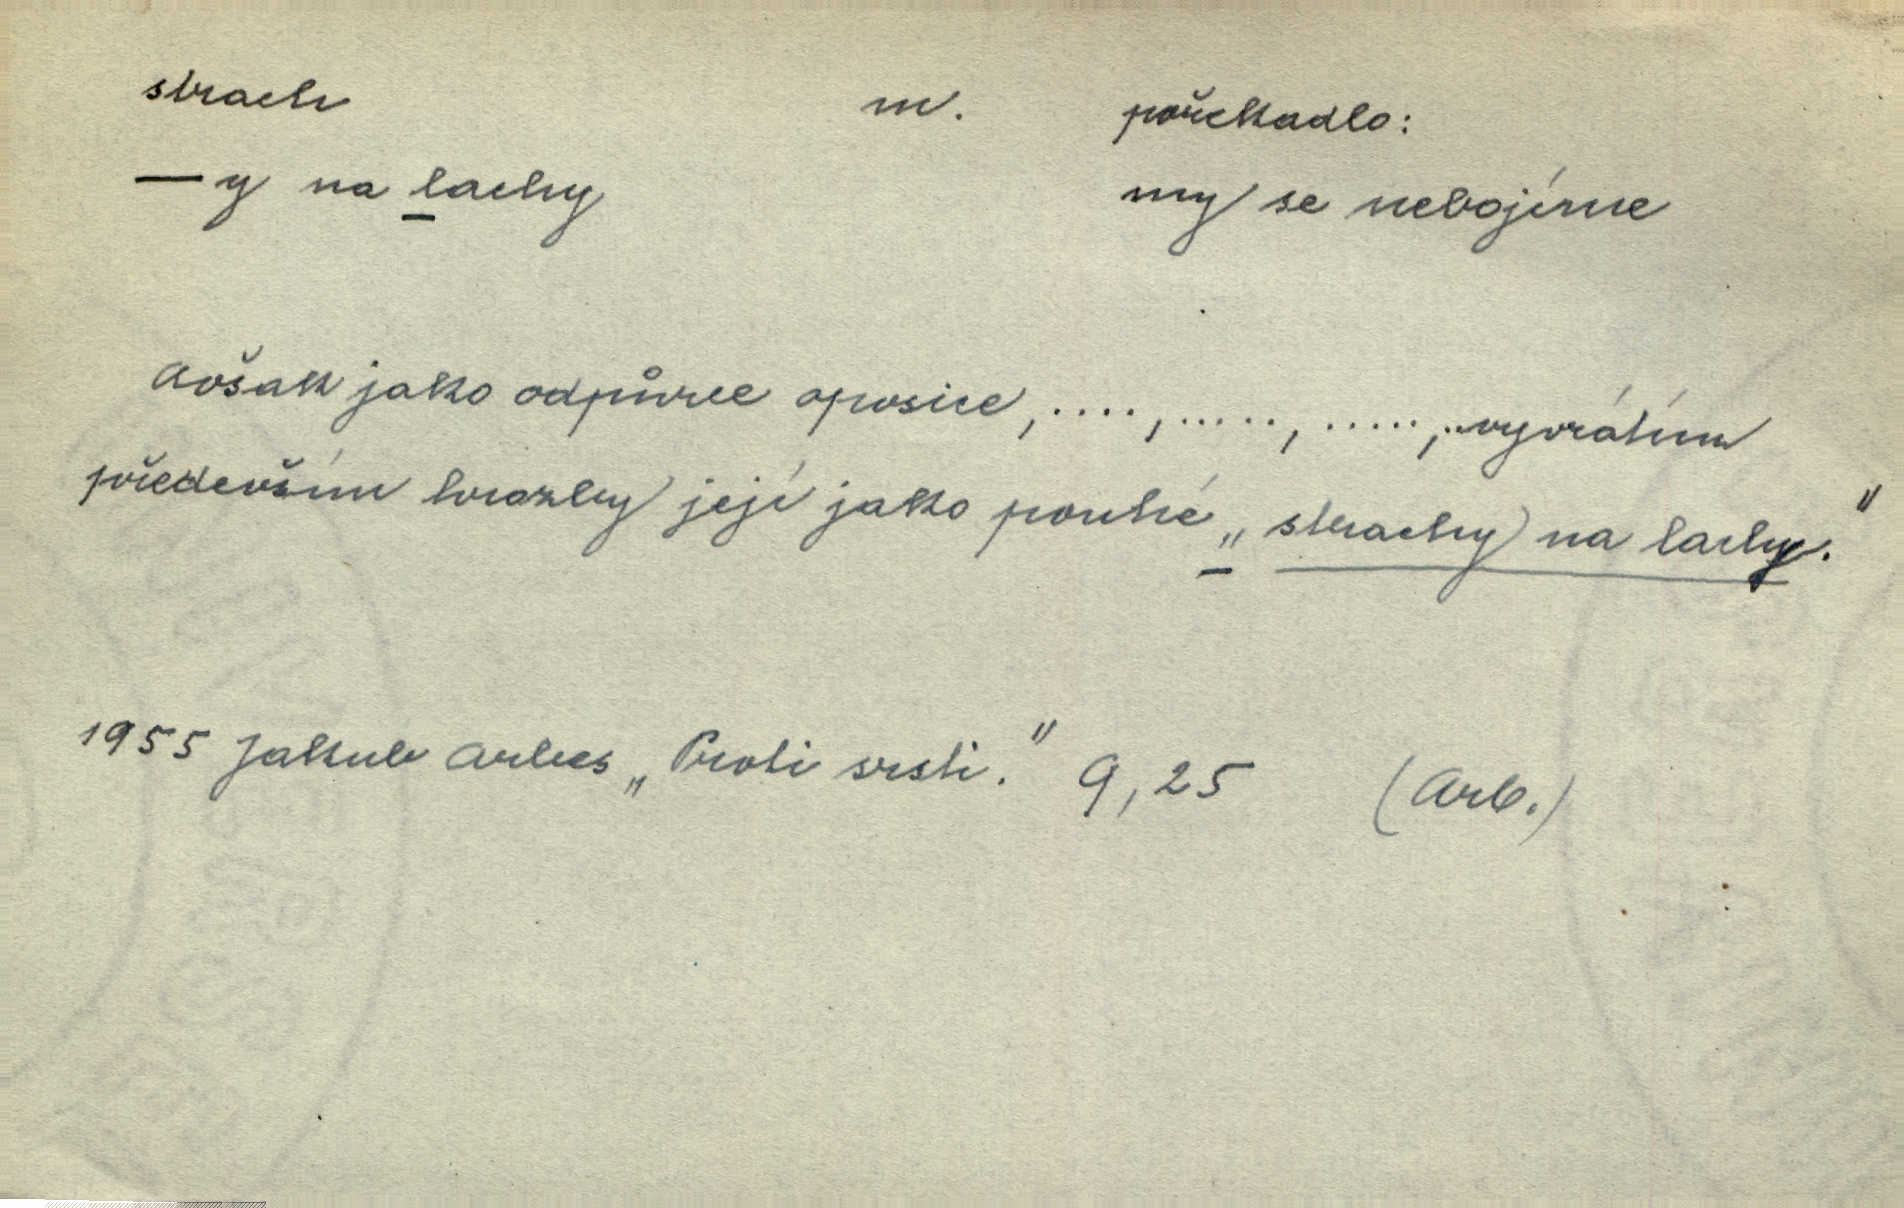 strach m. pořekadlo:
—y na lachy my se nebojíme
Avšak jako odpůrce oposice, ...., ....., ....., ..vyvrátím
především hrozby její jako pouhé „strachy na lachy."
1955 Jakub Arbes „Proti srsti." 9,25 (Arb.)